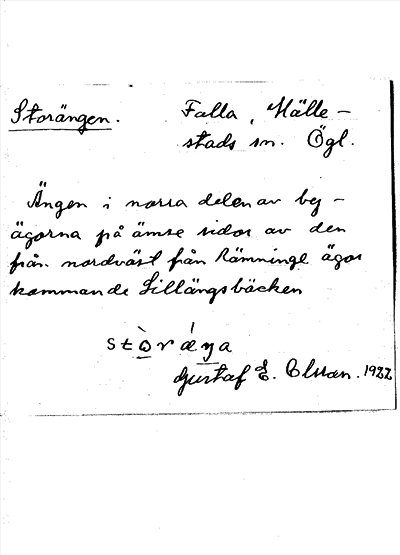 Storängen. Falla, Hälle-
stads sn. Ögl.
Ängen i norra delen av by-
ägorna på ömse sidor av den
från nordväst från Rämninge ägor
kommande Lillängsbäcken
stòràŋa
Gustaf E. Olsson. 1922